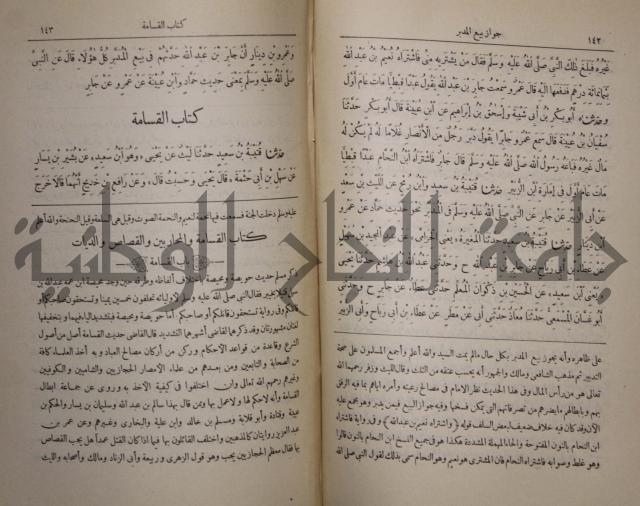 ١٤٢
جواز بيع المدبر
غيره فبلغ ذلك النبى صلى الله عليه وسلم فقال من يشتريه منى فاشتراه نعيم بن عبد الله
بثمانمائة درهم فدفعها اليه قال عمرو سمعت جابر بن عبد الله يقول عبدا قبطيا مات عام أول
وحدثناه أبو بكر بن أبى شيبة وإسحق بن إبراهيم عن ابن عيينة قال أبو بكر حدثنا
سفيان بن عيينة قال سمع عمرو جابرا يقول دبر رجل من الأنصار غلاما له لم يكن له
مال غيره فباعه رسول الله صلى الله عليه وسلم قال جابر فاشتراه ابن النحام عبدا قبطيا
مات عام أول فى إمارة ابن الزبير حدثنا قتيبة بن سعيد وابن رمح عن الليث بن سعد
عن أبى الزبير عن جابر عن النبى صلى الله عليه وسلم فى المدبر نحو حديث حماد عن عمرو
ابن دينار حدثنا قتيبة بن سعيد حدثنا المغيرة يعنى الحزامى عن عبد المجيد بن سهيل
عن عطاء بن أبى رباح عن جابر بن عبد الله ح وحدثنى عبد الله
يعنى ابن سعيد عن الحسين بن ذكوان المعلم حدثنى عطاء عن جابر ح وحدثنى
أبو غسان المسمعى حدثنا معاذ حدثنى أبى عن مطر عن عطاء بن أبى رباح وأبى الزبير
على ظاهره وأنه يجوز بيع المدبر بكل حال مالم يمت السيد والله أعلم وأجمع المسلمون على صحة
التدبير ثم مذهب الشافعى ومالك والجمهور أنه يحسب عتقه من الثلث وقال الليث وزفر رحمهما الله
تعالى هو من رأس المال وفى هذا الحديث نظر الامام فى مصالح رعيته وأمره اياهم بما فيه الرفق
بهم وبابطالهم ما يضرهم من تصرفاتهم التى يمكن فسخها وفيه جواز البيع فيمن يدبر وهو مجمع عليه
الآن وقد كان فيه خلاف ضعيف لبعض السلف قوله ﴿واشتراه نعيم بن عبد الله﴾ وفى رواية فاشتراه
ابن النحام بالنون المفتوحة والحاء المهملة المشددة هكذا هو فى جميع النسخ ابن النحام بالنون قالوا
وهو غلط وصوابه فاشتراه النحام فان المشترى هو نعيم وهو النحام سمى بذلك لقول النبى صلى الله
كتاب القسامة
١٤٣
وعمرو بن دينار أن جابر بن عبد الله حدثهم فى بيع المدبر كل هؤلاء قال عن النبى
صلى الله عليه وسلم بمعنى حديث حماد وابن عيينة عن عمرو عن جابر
كتاب القسامة
حدثنا قتيبة بن سعيد حدثنا ليث عن يحيى وهو ابن سعيد عن بشير بن يسار
عن سهل بن أبى حثمة قال يحيى وحسبت قال وعن رافع بن خديج أنهما قالا خرج
عليه وسلم دخلت الجنة فسمعت فيها نحمة لنعيم والنحمة الصوت وقيل هى السعلة وقيل النحنحة والله أعلم
كتاب القسامة والمحاربين والقصاص والديات
باب القسامة
ذكر مسلم حديث حويصة ومحيصة باختلاف ألفاظه وطرقه حين وجد محيصة ابن عمه عبد الله بن
سهل قتيلا بخيبر فقال النبى صلى الله عليه وسلم لأوليائه تحلفون خمسين يمينا وتستحقون صاحبكم أو
قاتلكم وفى رواية تستحقون قاتلكم أو صاحبكم أما حويصة ومحيصة فبتشديد الياء فيهما وتخفيفها
لغتان مشهورتان وقد ذكرهما القاضى أشهرهما التشديد قال القاضى حديث القسامة أصل من أصول
الشرع وقاعدة من قواعد الأحكام وركن من أركان مصالح العباد وبه أخذ العلماء كافة
من الصحابة والتابعين ومن بعدهم من علماء الأمصار الحجازيين والشاميين والكوفيين
وغيرهم رحمهم الله تعالى وان اختلفوا فى كيفية الأخذ به وروى عن جماعة ابطال
القسامة وأنه لاحكم لها ولا عمل بها وممن قال بهذا سالم بن عبد الله وسليمان بن يسار والحكم بن
عيينة وقتادة وأبو قلابة ومسلم بن خالد وابن علية والبخارى وغيرهم وعن عمر بن
عبد العزيز روايتان كالمذهبين واختلف القائلون بها فيما اذا كان القتل عمدا هل يجب القصاص
بها فقال معظم الحجازيين يجب وهو قول الزهرى وربيعة وأبى الزناد ومالك وأصحابه والليث
جامعة النجاح الوطنية